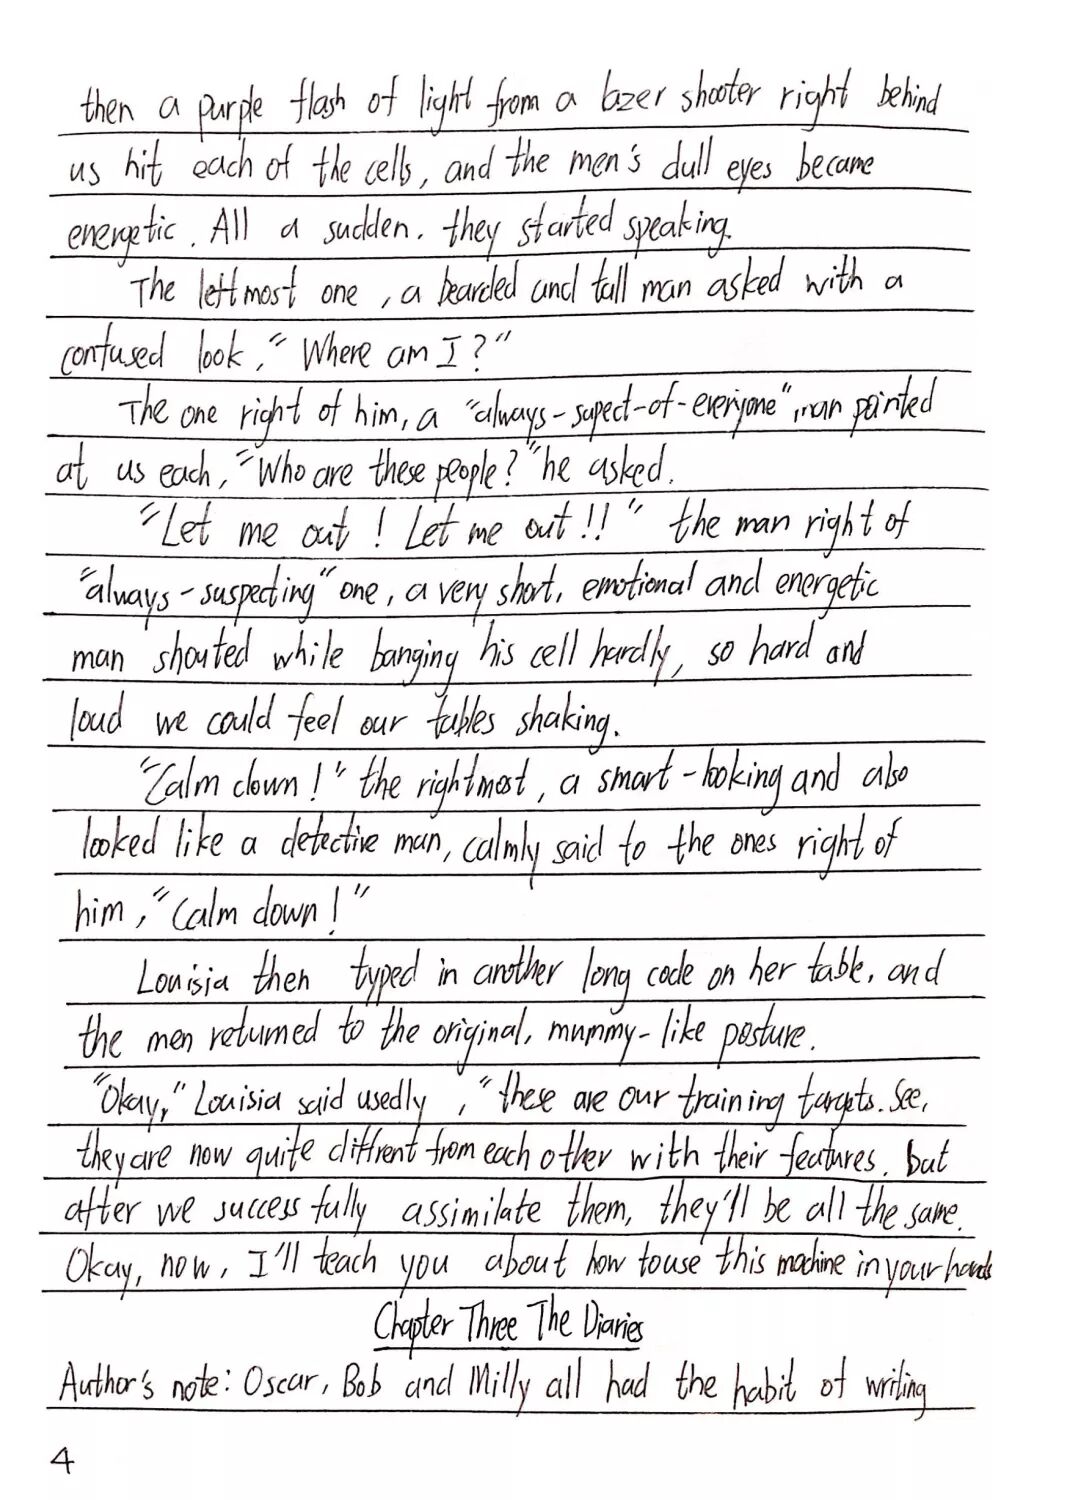 then a purple flash of light from a lazer shooter right behind
us hit each of the cells, and the men's dull eyes became
energetic. All a sudden. they started speaking.
The leftmost one, a bearded and tall man asked with a
confused look, "Where am I?"
The one right of him, a "always-supect-of-everyone" man pointed
at us each, "Who are these people?" he asked.
"Let me out! Let me out!!" the man right of
"always-suspecting" one, a very short, emotional and energetic
man shouted while banging his cell hardly, so hard and
loud we could feel our tables shaking.
"Calm down!" the rightmost, a smart-looking and also
looked like a detective man, calmly said to the ones right of
him, "Calm down!"
Louisia then typed in another long code on her table, and
the men returned to the original, mummy-like posture.
"Okay," Louisia said usedly, "these are our training targets. See,
they are now quite diffrent from each other with their features, but
after we successfully assimilate them, they'll be all the same.
Okay, now, I'll teach you about how to use this machine in your hands
Chapter Three The Diaries
Author's note: Oscar, Bob and Milly all had the habit of writing
4